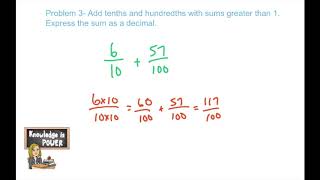 Problem 3- Add tenths and hundredths with sums greater than 1.
Express the sum as a decimal.
6/10 + 57/100
6x10/10x10 = 60/100 + 57/100 = 117/100
Knowledge is
POWER